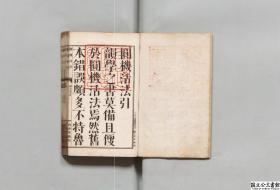 圓機活法引
韻學之書莫備且便
於圓機活法焉然舊
本錯誤頗多不特魯
国立公文書館